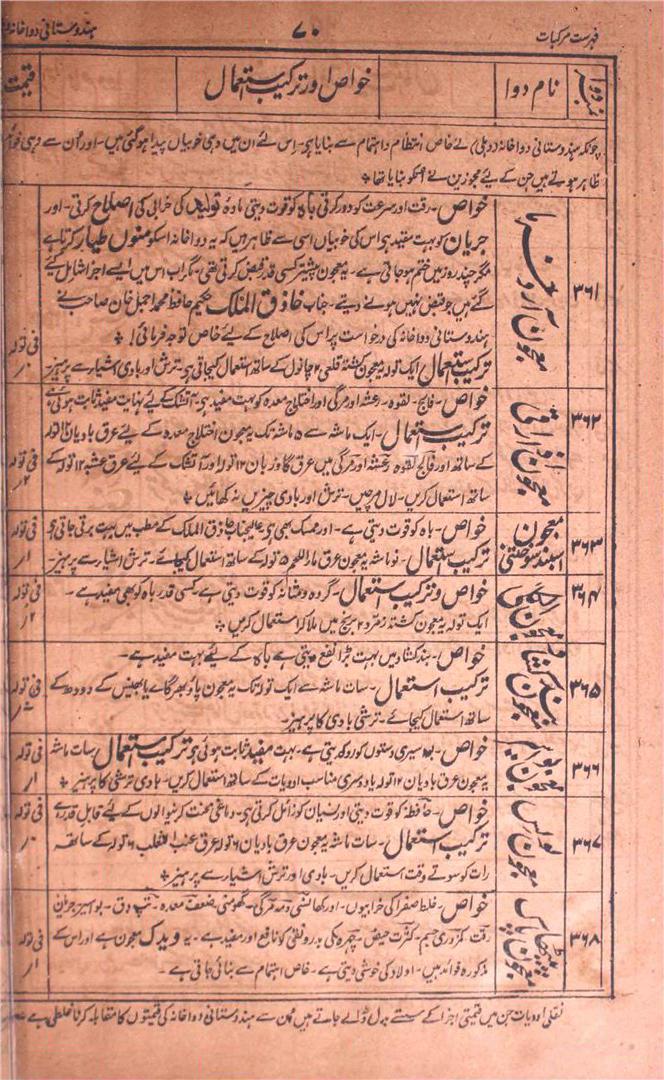 فہرست مرکبات ۷۰ ہندوستانی دواخانہ
نمبر دوا نام دوا خواص اور ترکیب استعمال قیمت
چونکہ ہندوستانی دواخانہ (دہلی) نے خاص انتظام و اہتمام سے بنایا ہی۔ اس لئے ان میں وہی خوبیاں پیدا ہوگئی ہیں۔ اور اُن سے وہی
ظاہر ہوتے ہیں جن کے لیے مجوزین نے اسکو بنایا تھا *
۳۶۱ معجون آرد خرما
خواص۔ رقت اور سرعت کو دور کرتی باہ کو قوت دیتی مادۂ تولید کی خرابی کی اصلاح کرتی۔ اور
جریان کو بہت مفید ہی اس کی خوبیاں اسی سے ظاہر ہیں کہ یہ دواخانہ اسکو منوں طیار کرتا ہے
مگر چند روز میں ختم ہو جاتی ہے۔ یہ معجون پیشتر کسی قدر قبض کرتی تھی۔ مگر اب اس میں ایسے اجزا شامل کئے
گئے ہیں جو قبض نہیں ہونے دیتے۔ جناب حاذق الملک حکیم حافظ محمد اجمل خان صاحب نے
ہندوستانی دواخانہ کی درخواست پر اس کی اصلاح کے لیے خاص توجہ فرمائی *
ترکیب استعمال ایک تولہ معجون کشتہ قلعی ۲ چانول کے ساتھ استعمال کیجاتی ہی۔ ترش اور بادی اشیار سے پرہیز۔
فی تولہ
۳۶۲ معجون اذاراقی
خواص۔ فالج۔ لقوہ۔ رعشہ اور مرگی اور اختلاج معدہ کو بہت مفید ہی۔ آتشک کے لیے نہایت مفید ثابت ہوئی ہے
ترکیب استعمال۔ ایک ماشہ سے ۵ ماشہ تک یہ معجون اختلاج معدہ کے لیے عرق بادیان ۱۲ تولہ
کے ساتھ اور فالج لقوہ رعشہ اور مرگی میں عرق گاؤزبان ۱۲ تولہ اور آتشک کے لیے عرق عشبہ ۱۲ تولہ کے
ساتھ استعمال کریں۔ لال مرچیں۔ ترش اور بادی چیزیں نہ کھائیں *
فی تولہ ۲ر
۳۶۳ معجون اسپند سوختنی
خواص۔ باہ کو قوت دیتی ہے۔ اور ممسک بھی ہی عالیجناب حاذق الملک کے مطب میں بہت برتی جاتی ہی
ترکیب استعمال۔ نو ماشہ یہ معجون عرق ماء اللحم ۵ تولہ کے ساتھ استعمال کیجائے۔ ترش اشیار سے پرہیز۔
فی تولہ ۱ر
۳۶۴ معجون
خواص و ترکیب استعمال۔ گردہ و مثانہ کو قوت دیتی ہے کسی قدر باہ کو بھی مفید ہے۔
ایک تولہ یہ معجون کشتہ زمرد ۲ برنج میں ملا کر استعمال کریں *
فی تولہ ۲ر
۳۶۵ معجون بندکشاد
خواص۔ بندکشاد میں بہت بڑا نفع دیتی ہے باہ کے لیے بہت مفید ہے۔
ترکیب استعمال۔ سات ماشہ سے ایک تولہ تک یہ معجون پاؤ بھر گائے یا بھینس کے دودھ کے
ساتھ استعمال کیجائے۔ ترشی بادی کا پرہیز۔
فی تولہ
۳۶۶ معجون بواسیر
خواص۔ بواسیری دستوں کو روکدیتی ہے۔ بہت مفید ثابت ہوئی ہی ترکیب استعمال سات ماشہ
یہ معجون عرق بادیان ۱۲ تولہ یا دوسری مناسب ادویات کے ساتھ استعمال کریں۔ بادی ترشی کا پرہیز *
فی تولہ ۱ر
۳۶۷ معجون بولس
خواص۔ حافظہ کو قوت دیتی اور نسیان کو زائل کرتی ہی۔ دماغی محنت کرنیوالوں کے لیے قابل قدر ہے
ترکیب استعمال۔ سات ماشہ یہ معجون عرق بادیان ۶ تولہ عرق عنب الثعلب ۶ تولہ کے ساتھ
رات کو سوتے وقت استعمال کریں۔ بادی اور ترش اشیار سے پرہیز *
فی تولہ
۳۶۸ معجون پیٹھا پاک
خواص۔ غلیظ صفرا کی خرابیوں۔ اور کھانسی دمہ مرگی۔ گھومنی ضعف معدہ۔ تپ دق۔ بواسیر جریان
رقت کمزوری جسم۔ کثرت حیض۔ چہرہ کی بدرونقی کو نافع اور مفید ہے۔ یہ ویدک معجون ہے اور اس کے
مذکورہ فوائد ہیں۔ اولاد کی خوشی دیتی ہے۔ خاص اہتمام سے بنائی جاتی ہے۔
فی تولہ ۱ر
نقلی ادویات جن میں قیمتی اجزا کے سستے بدل ڈالے جاتے ہیں اُن سے ہندوستانی دواخانہ کی قیمتوں کا مقابلہ کرنا غلطی ہے